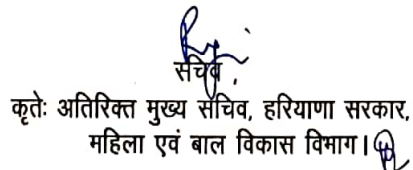 सचिव,
कृतेः अतिरिक्त मुख्य सचिव, हरियाणा सरकार,
महिला एवं बाल विकास विभाग।